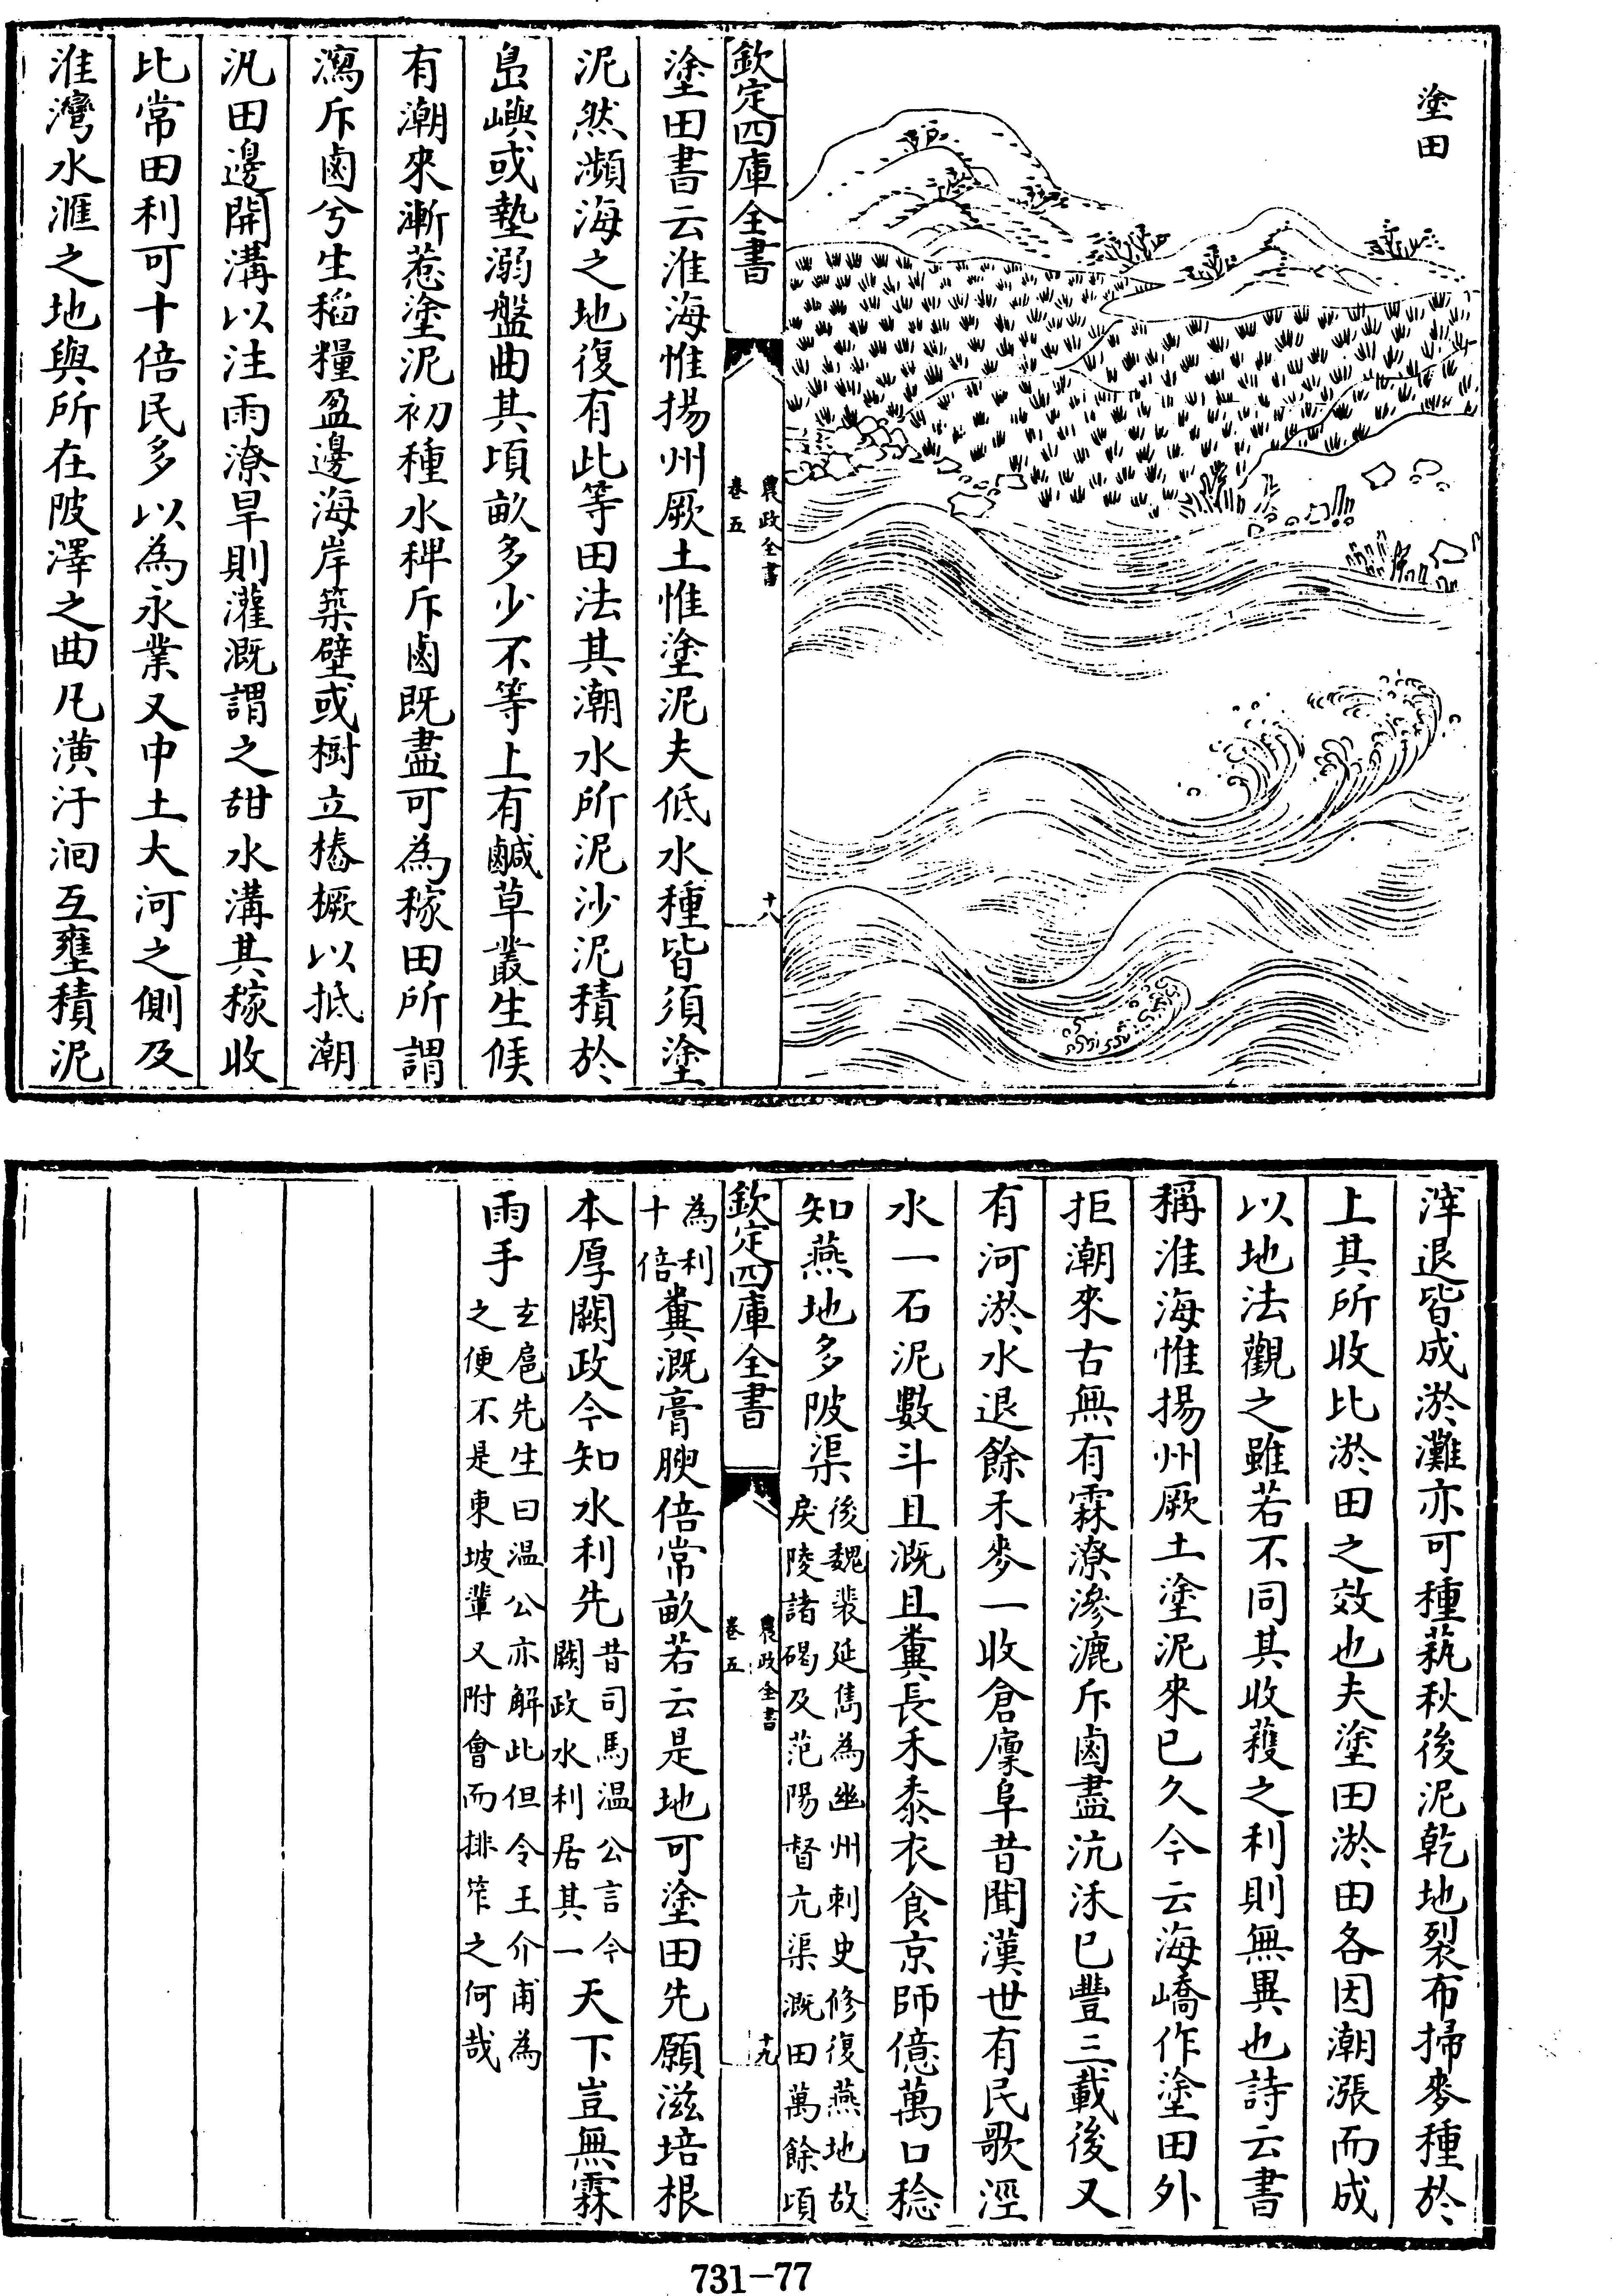 塗田
欽定四庫全書
農政全書
卷五
十八
塗田書云淮海惟揚州厥土惟塗泥夫低水種皆須塗
泥然瀕海之地復有此等田法其潮水所泥沙泥積於
島嶼或墊溺盤曲其頃畝多少不等上有鹹草叢生候
有潮來漸惹塗泥初種水稗斥鹵既盡可為稼田所謂
瀉斥鹵兮生稻糧盈邊海岸築壁或樹立樁橛以抵潮
汎田邊開溝以注雨潦旱則灌溉謂之甜水溝其稼收
比常田利可十倍民多以為永業又中土大河之側及
淮灣水滙之地與所在陂澤之曲凡潢汙洄互壅積泥
滓退皆成淤灘亦可種蓺秋後泥乾地裂布掃麥種於
上其所收比淤田之效也夫塗田淤田各因潮漲而成
以地法觀之雖若不同其收穫之利則無異也詩云書
稱淮海惟揚州厥土塗泥來已久今云海嶠作塗田外
拒潮來古無有霖潦滲漉斥鹵盡沆沃已豐三載後又
有河淤水退餘禾麥一收倉廩阜昔聞漢世有民歌涇
水一石泥數斗且溉且糞長禾黍衣食京師億萬口稔
知燕地多陂渠後魏裴延雋為幽州刺史修復燕地故
戾陵諸碣及范陽督亢渠溉田萬餘頃
欽定四庫全書
農政全書
卷五
十九
為利
十倍糞溉膏腴倍常畝若云是地可塗田先願滋培根
本厚闕政今知水利先昔司馬温公言今
闕政水利居其一天下豈無霖
雨手玄扈先生曰温公亦解此但令王介甫為
之便不是東坡輩又附會而排笮之何哉
731-77